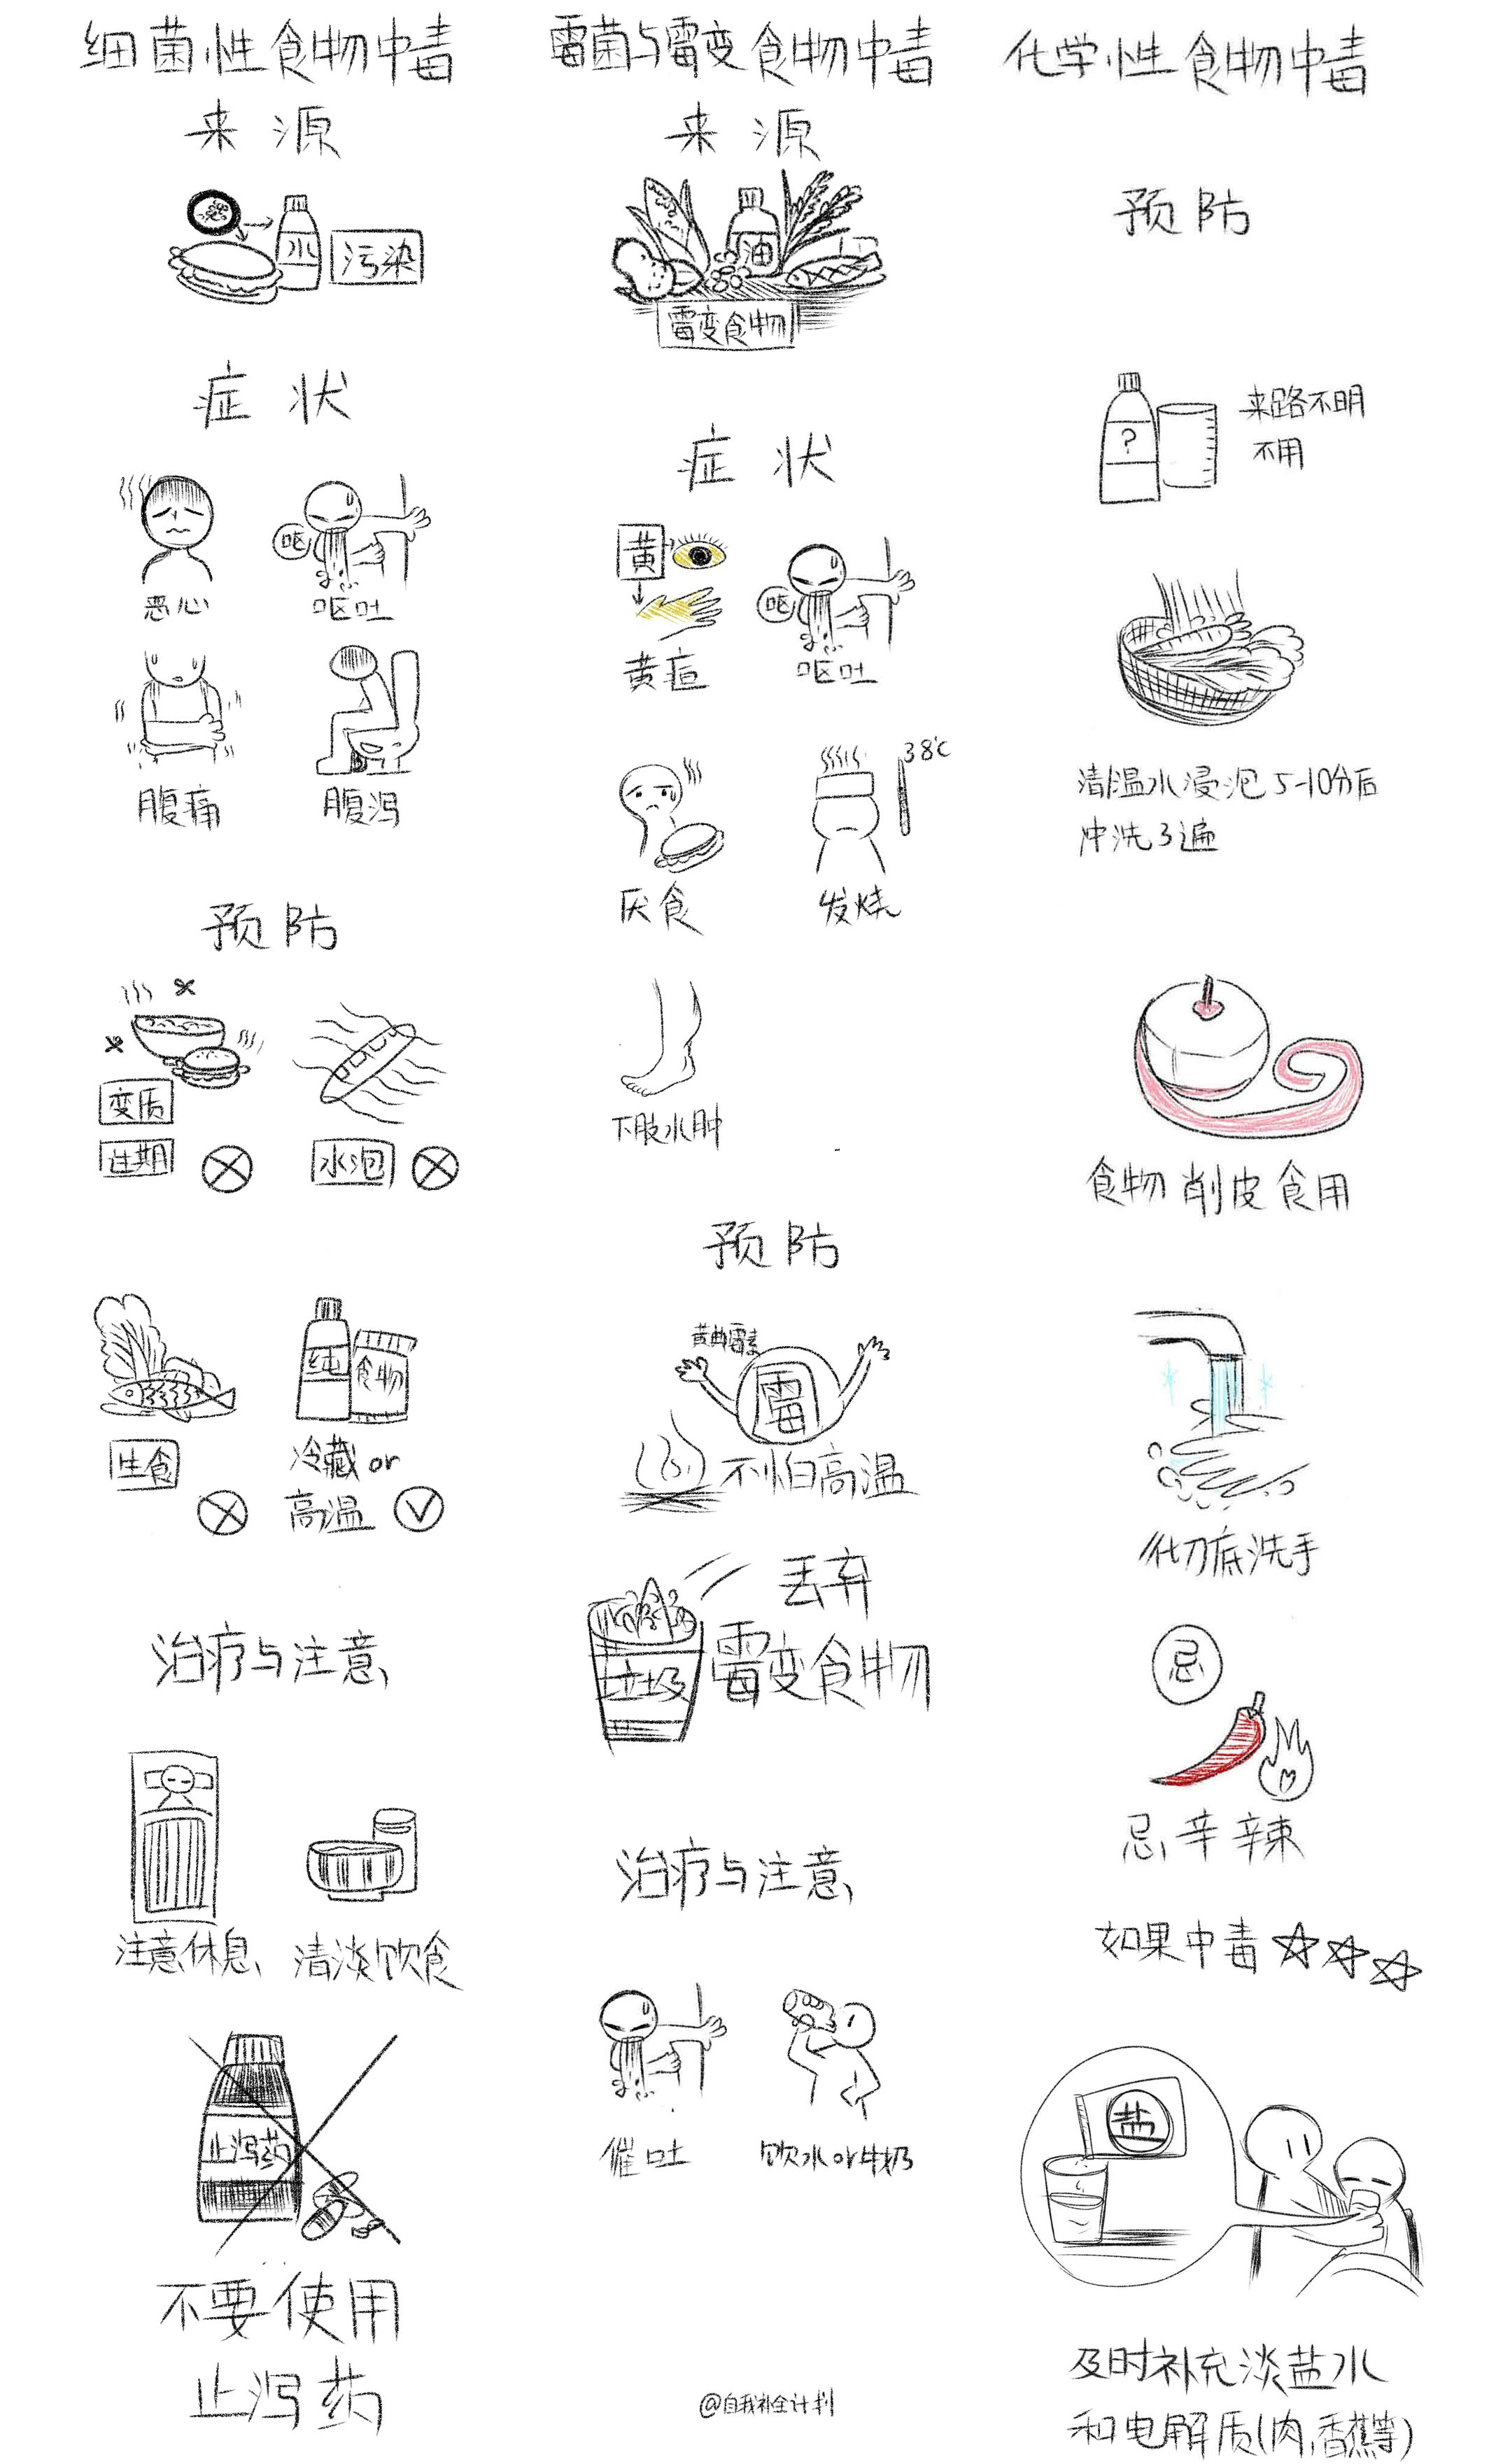 细菌性食物中毒
来源
水
污染
症状
恶心
呕
呕吐
腹痛
腹泻
预防
变质
过期
水泡
生食
纯
食物
冷藏or
高温
治疗与注意
注意休息
清淡饮食
止泻药
不要使用
止泻药
霉菌与霉变食物中毒
来源
油
霉变食物
症状
黄
黄疸
呕
呕吐
厌食
38℃
发烧
下肢水肿
预防
黄曲霉素
霉
不怕高温
丢弃
垃圾
霉变食物
治疗与注意
催吐
饮水or牛奶
@自我补全计划
化学性食物中毒
预防
?
来路不明
不用
清温水浸泡5-10分后
冲洗3遍
食物削皮食用
彻底洗手
忌
忌辛辣
如果中毒☆☆☆
盐
及时补充淡盐水
和电解质(肉,香蕉等)